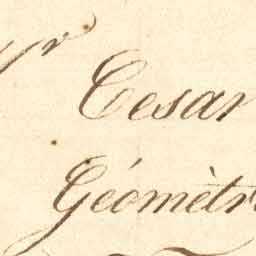 Mr
Cesar
Géomètr